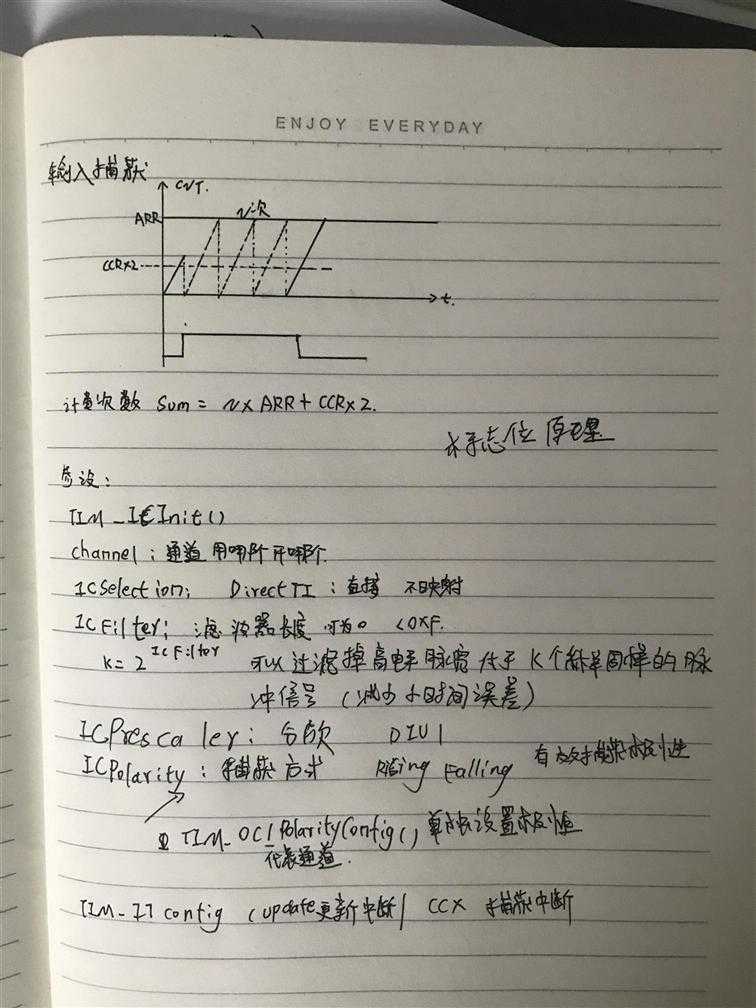 ENJOY EVERYDAY
输入捕获
CNT.
ARR
N次
CCRX2
t.
计数次数 Sum = N X ARR + CCRX2.
标志位原理
参设:
TIM_ICInit()
channel: 通道 用哪个开哪个.
ICSelection: DirectTI: 直接 不映射
ICFilter: 滤波器长度 可为0 <0XF.
K=2^ICFilter 可以过滤掉高电平脉宽低于K个采样周样的脉
冲信号 (减少小时间误差)
ICPrescaler: 分频 DIV1
ICPolarity: 捕获方式 Rising Falling 有效捕获极性
TIM_OC1PolarityConfig() 单独设置极性
代表通道.
TIM_ITconfig (update更新中断) CCX 捕获中断